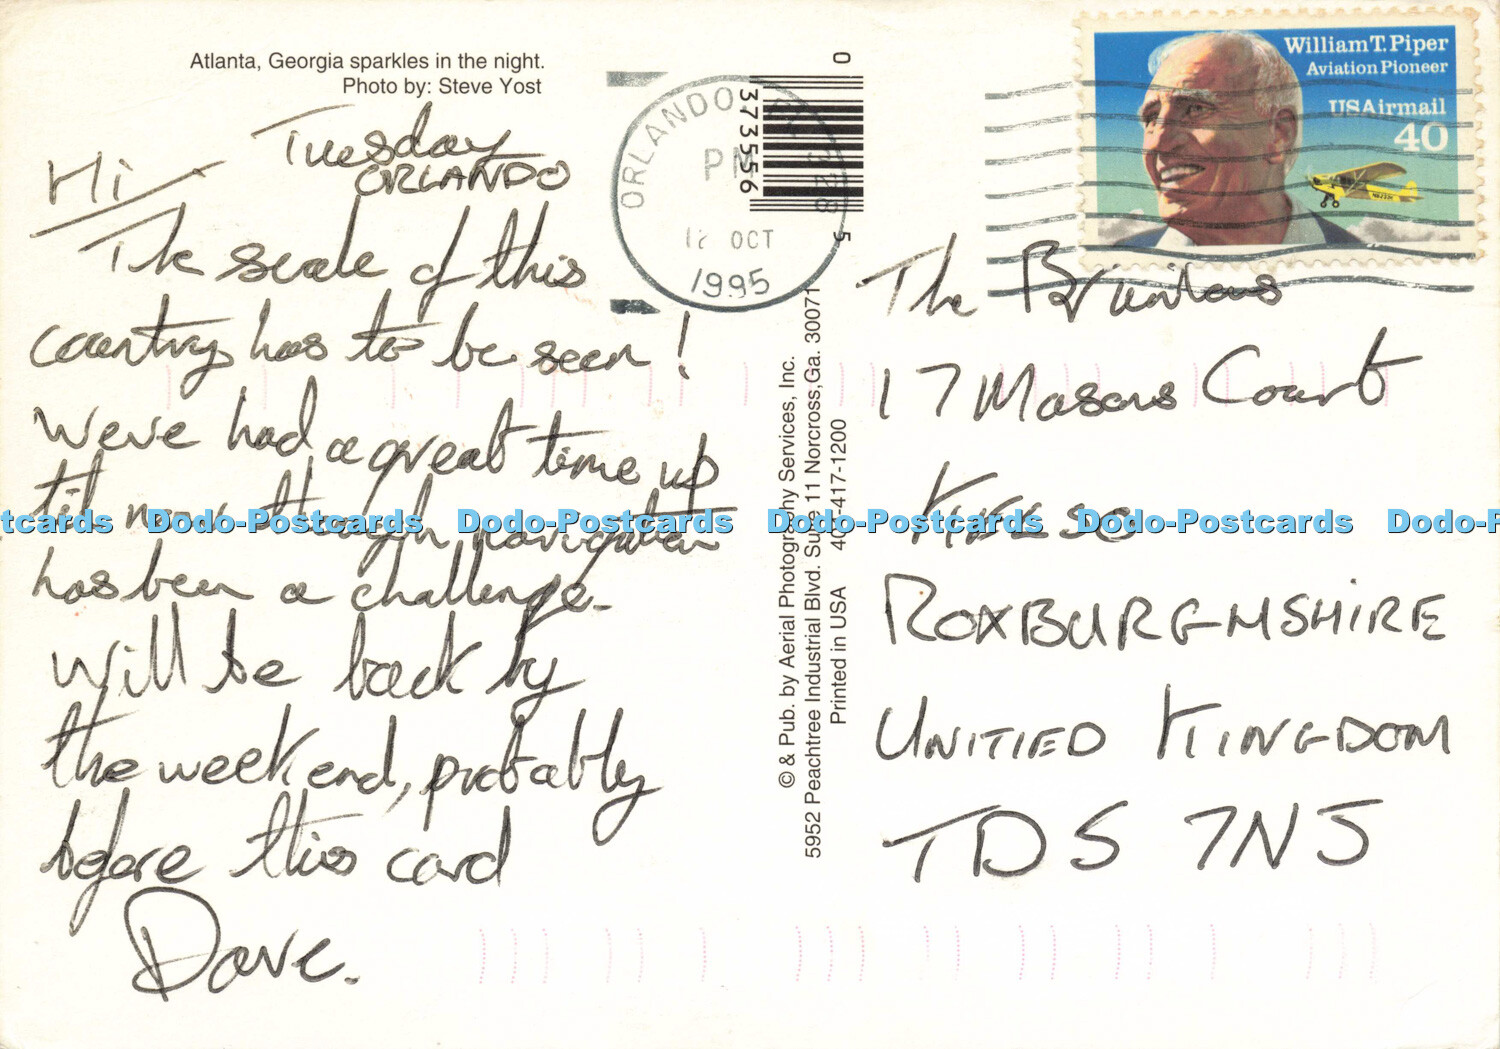 Atlanta, Georgia sparkles in the night.
Photo by: Steve Yost
Tuesday
ORLANDO
Hi
The scale of this
country has to be seen!
Weve had a great time up
til now though navigation
has been a challenge.
Will be back by
the weekend, probably
before this card
Dave.
ORLANDO, 328
PM
OCT
1995
0 373556 5
© & Pub. by Aerial Photography Services, Inc.
5952 Peachtree Industrial Blvd. Suite 11 Norcross, Ga. 30071
Printed in USA 404-417-1200
William T. Piper
Aviation Pioneer
USAirmail
40
The
17 Masons Court
KELSO
ROXBURGHSHIRE
UNITIED KINGDOM
TD5 7NJ
tcards Dodo-Postcards Dodo-Postcards Dodo-Postcards Dodo-Postcards Dodo-P